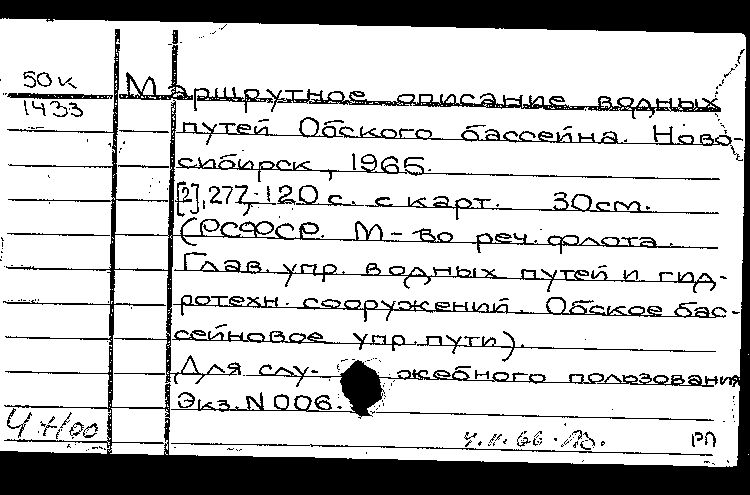 50к
1433
Маршрутное описание водных
путей Обского бассейна. Ново-
сибирск, 1965.
[2], 277, 120 с. с карт. 30см.
(РСФСР. М-во реч. флота.
Глав. упр. водных путей и гид-
ротехн. сооружений. Обское бас-
сейновое упр. пути).
Для слу- жебного ползования
Экз. N 006.
4.II.66.
РП